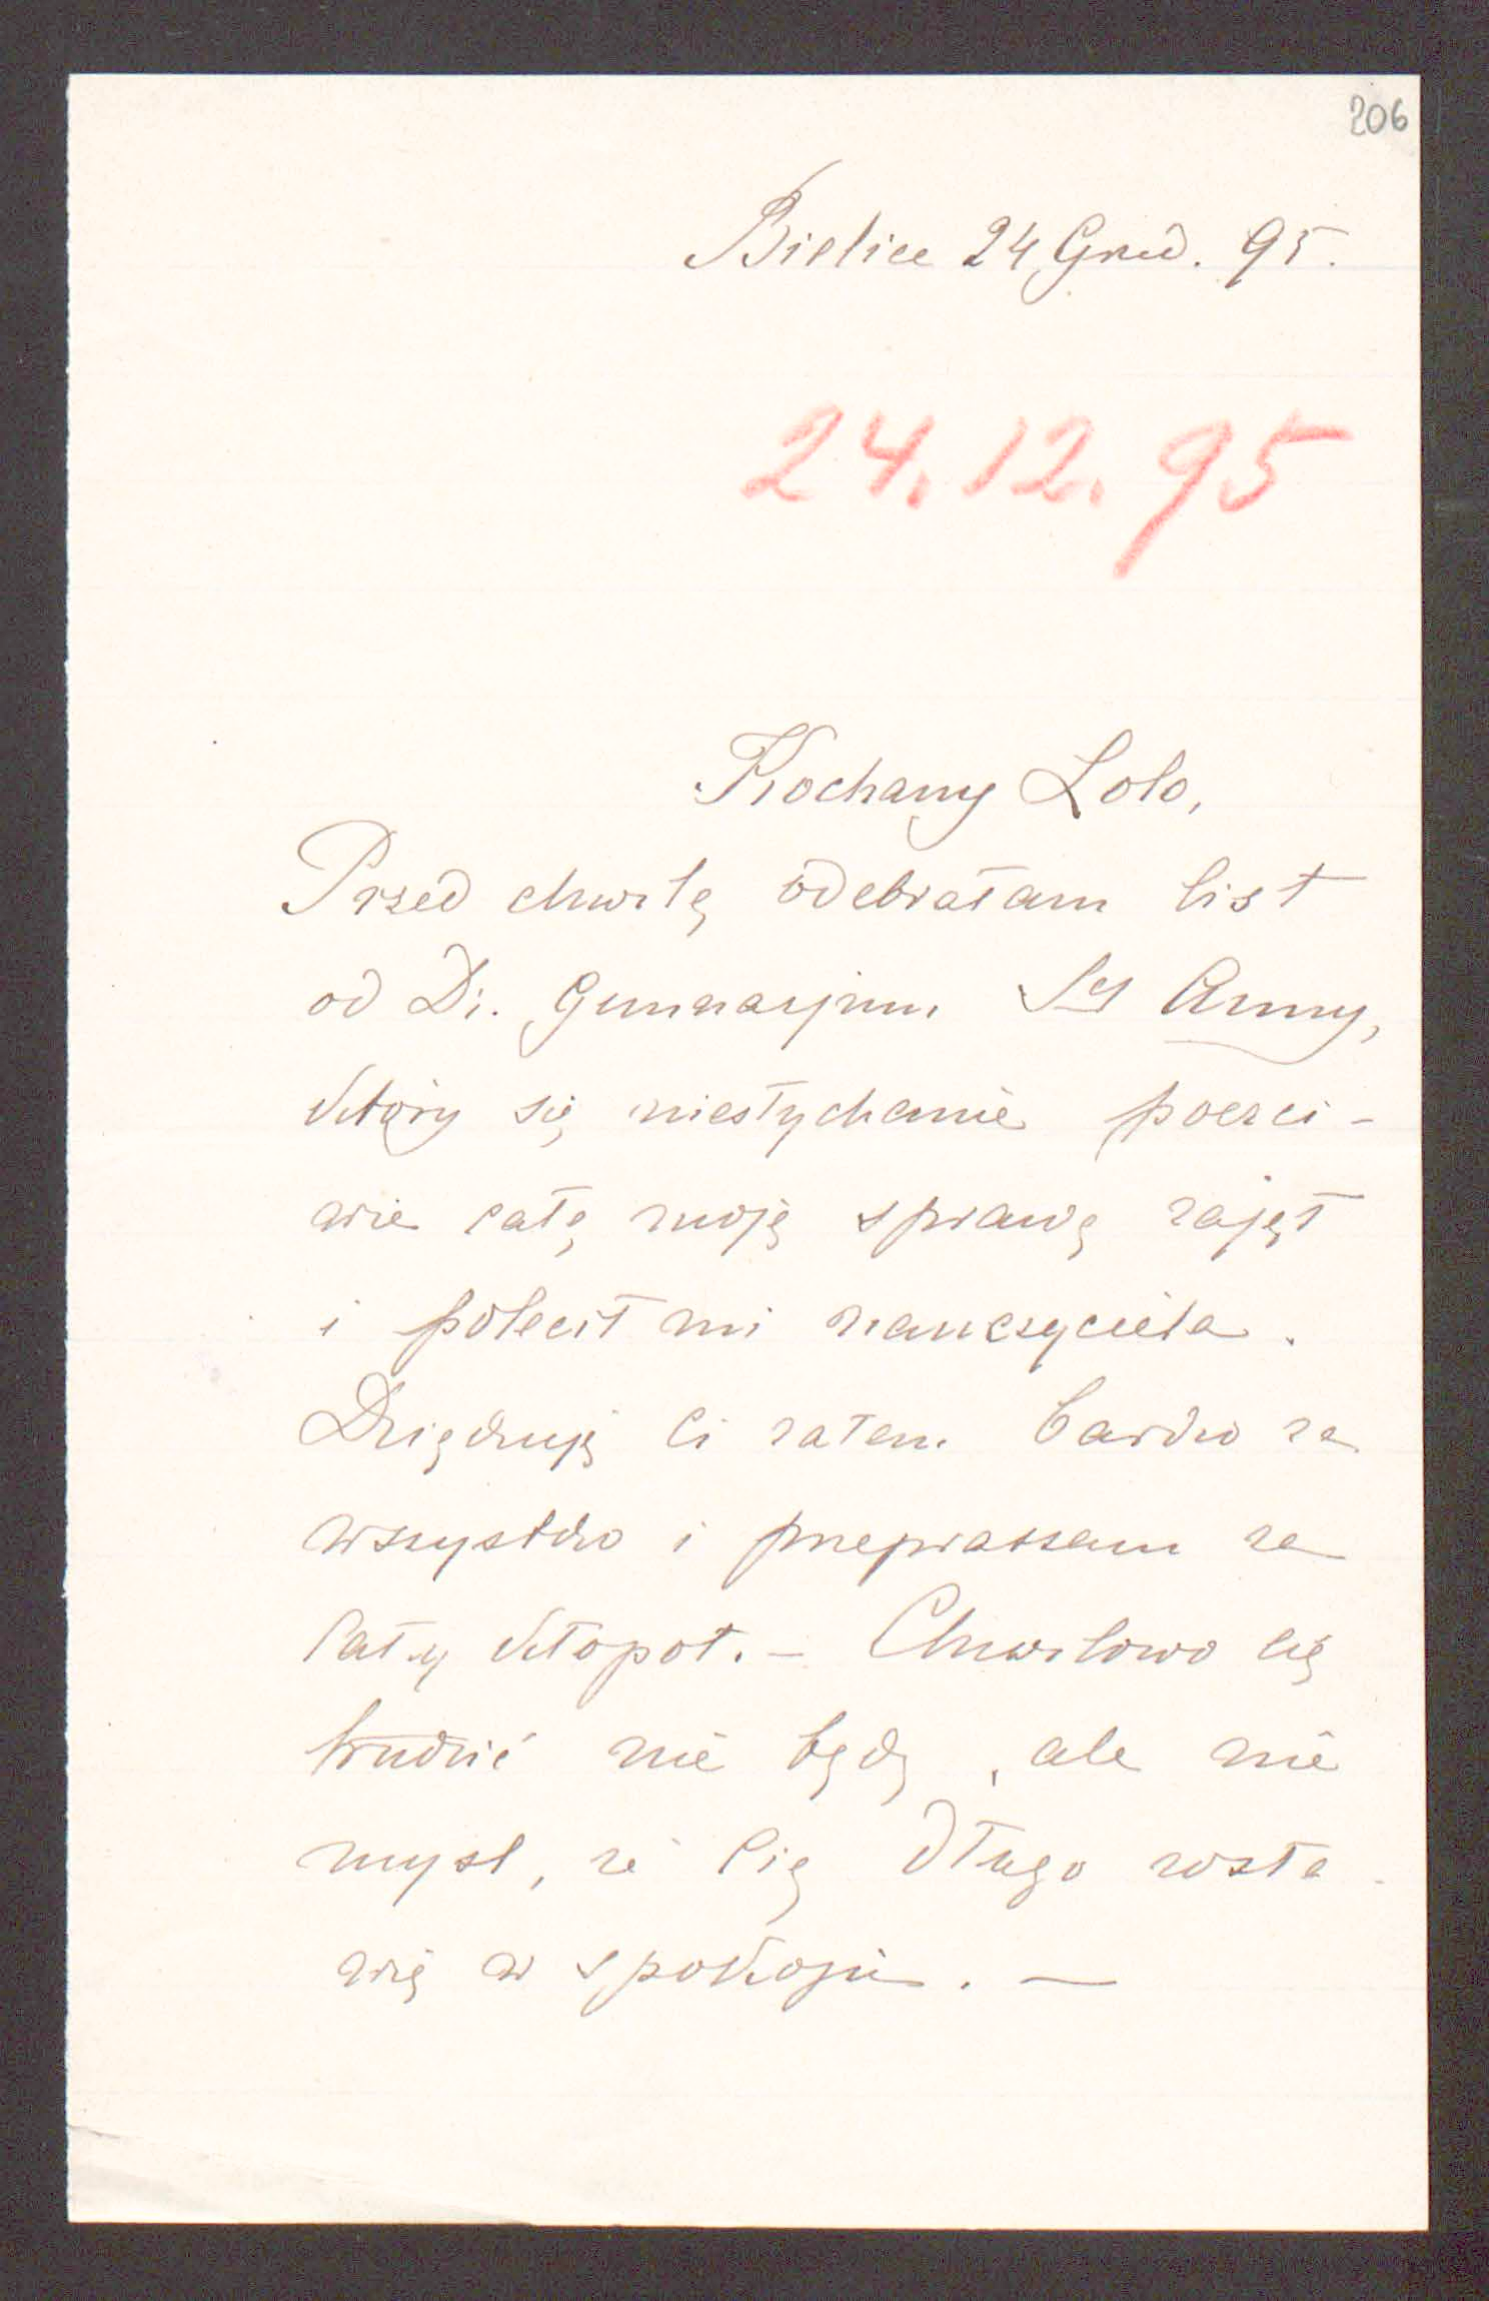 206
Bielice 24 Grud. 95.
24.12.95
Kochany Lolo,
Przed chwilą odebrałam list
od Di. Gumnasjum Sy Anny,
który się niesłychanie poczci-
wie całą moją sprawą zajął
i polecił mi nauczyciela.
Dziękuję Ci zatem bardzo za
wszystko i przepraszam za
cały kłopot. – Chwilowo Cię
trudnić nie będę, ale nie
myśl, że Cię długo zosta-
wię w spokoju. —